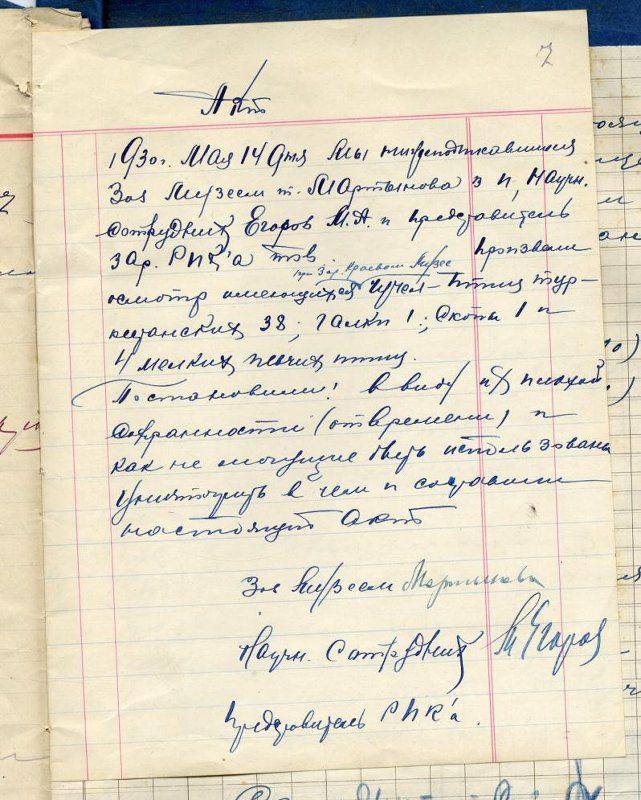 7
Акт
1930г. Мая 14 дня мы нижеподписавшиеся
Зав Музеем т. Мартынова З П, Научн.
Сотрудник Егоров М.А. и представитель
Зар. РИК'а тов произвели
при Зар. Краевом Музее
осмотр имеющихся чучел – птиц тур-
кестанских 38; Галки 1; Скопы 1 и
4 мелких певчих птиц.
Постановили: ввиду их плохой
сохранности (от времени) и
как не могущие быть использованы
уничтожить в чем и составили
настоящий акт
Зав Музеем Мартынова
Научн. Сотрудник М Егоров
Представитель РИК'а.